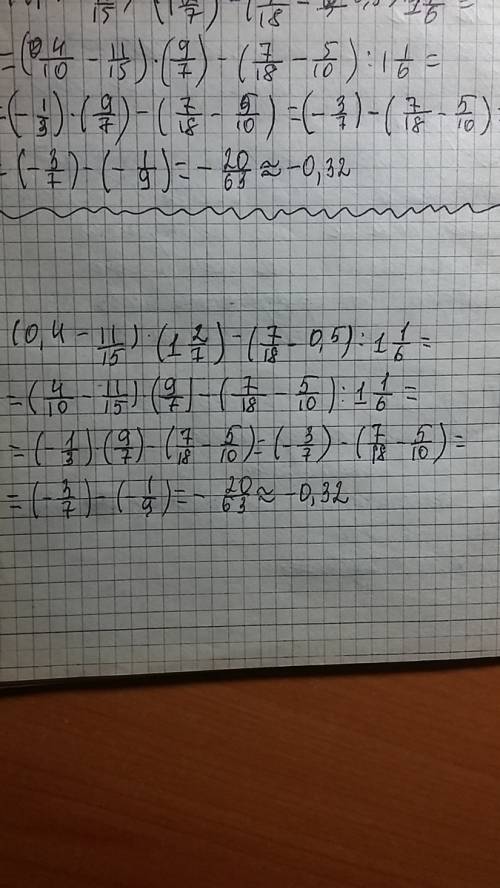 =(0,4/10 - 11/15)·(9/7)-(7/18 - 5/10):1 1/6=
=(-1/3)·(9/7)-(7/18 - 5/10)=(-3/7)-(7/18 - 5/10)=
=(-3/7)-(-1/9)=-20/63≈-0,32
(0,4 - 11/15)·(1 2/7)-(7/18 - 0,5):1 1/6=
=(4/10 - 11/15)·(9/7)-(7/18 - 5/10):1 1/6=
=(-1/3)·(9/7)-(7/18 - 5/10)=(-3/7)-(7/18 - 5/10)=
=(-3/7)-(-1/9)=-20/63≈-0,32